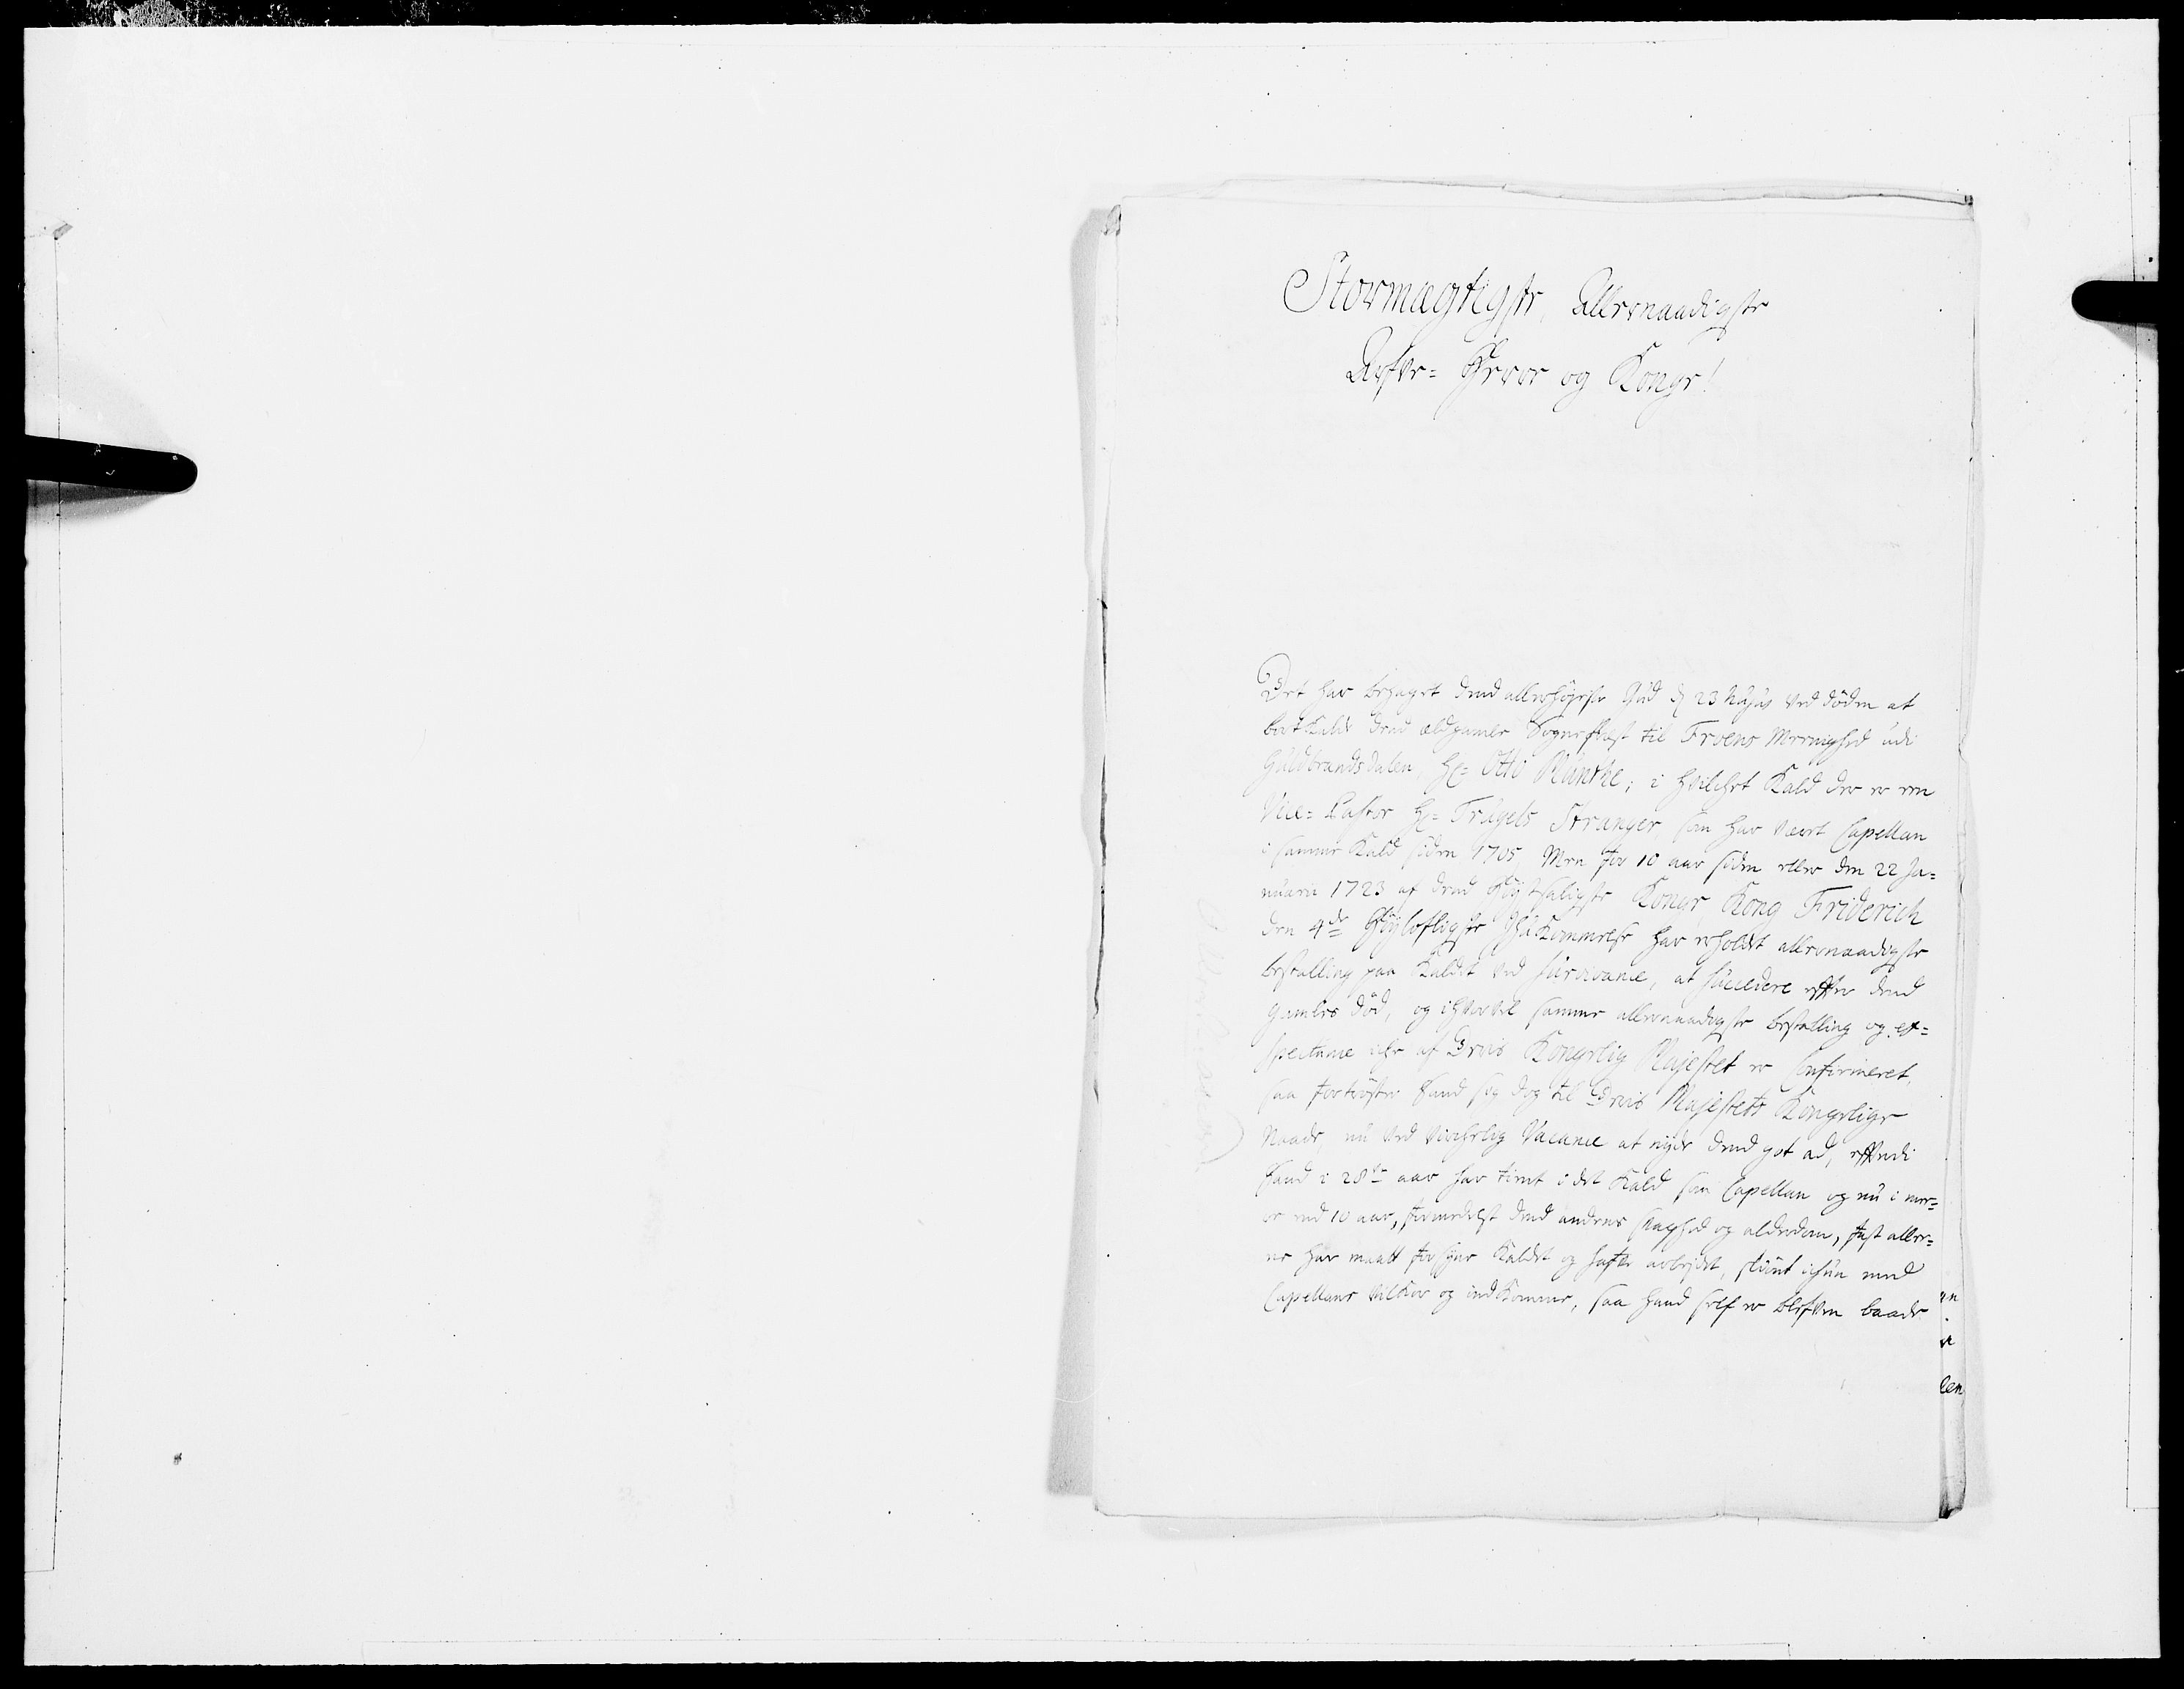 Stormægtigste, Allernaadigste
Arfve- Herre og Konge!
Det har behaget dend allerhøyeste Gud d 23 hujus ved døden at
bortkalde dend ældgamle Sognepræst til Froens Meenighed udi
Guldbrandsdalen, Hr= Otto Munthe; i hvilchet Kald der er een
Vice= Pastor Hr= Trugels Stranger, som har været Capellan
i samme Kald siden 1705, Men for 10 aar siden eller den 22 Ja=
nuarii 1723 af dend Høystsaligste Konge, Kong Friderich
den 4de Høyloflígste Ihukommelse har erholdt allernaadigste
bestalling paa Kaldet ved survivance, at succedere effter dend
gamles død, og ihvorvel samme allernaadigste bestalling og ex=
spectance iche af Deris Kongelig Majestet er Confirmeret,
saa fortrøster hand sig dog til Deris Majestets Kongelige
Naade, nu ved virchelig Vacance at nyde dend got ad, effterdi
hand i 28de aar har tient i det Kald som Capellan og nu i meer=
er end 10 aar, formedelst dend andens svaghed og alderdom, fast allee=
ne har maatt forsyne Kaldet og hafte arbejdet, skiønt ichun med
Capellans vilkor og indkomme, saa hand self er blefven baade
en
len